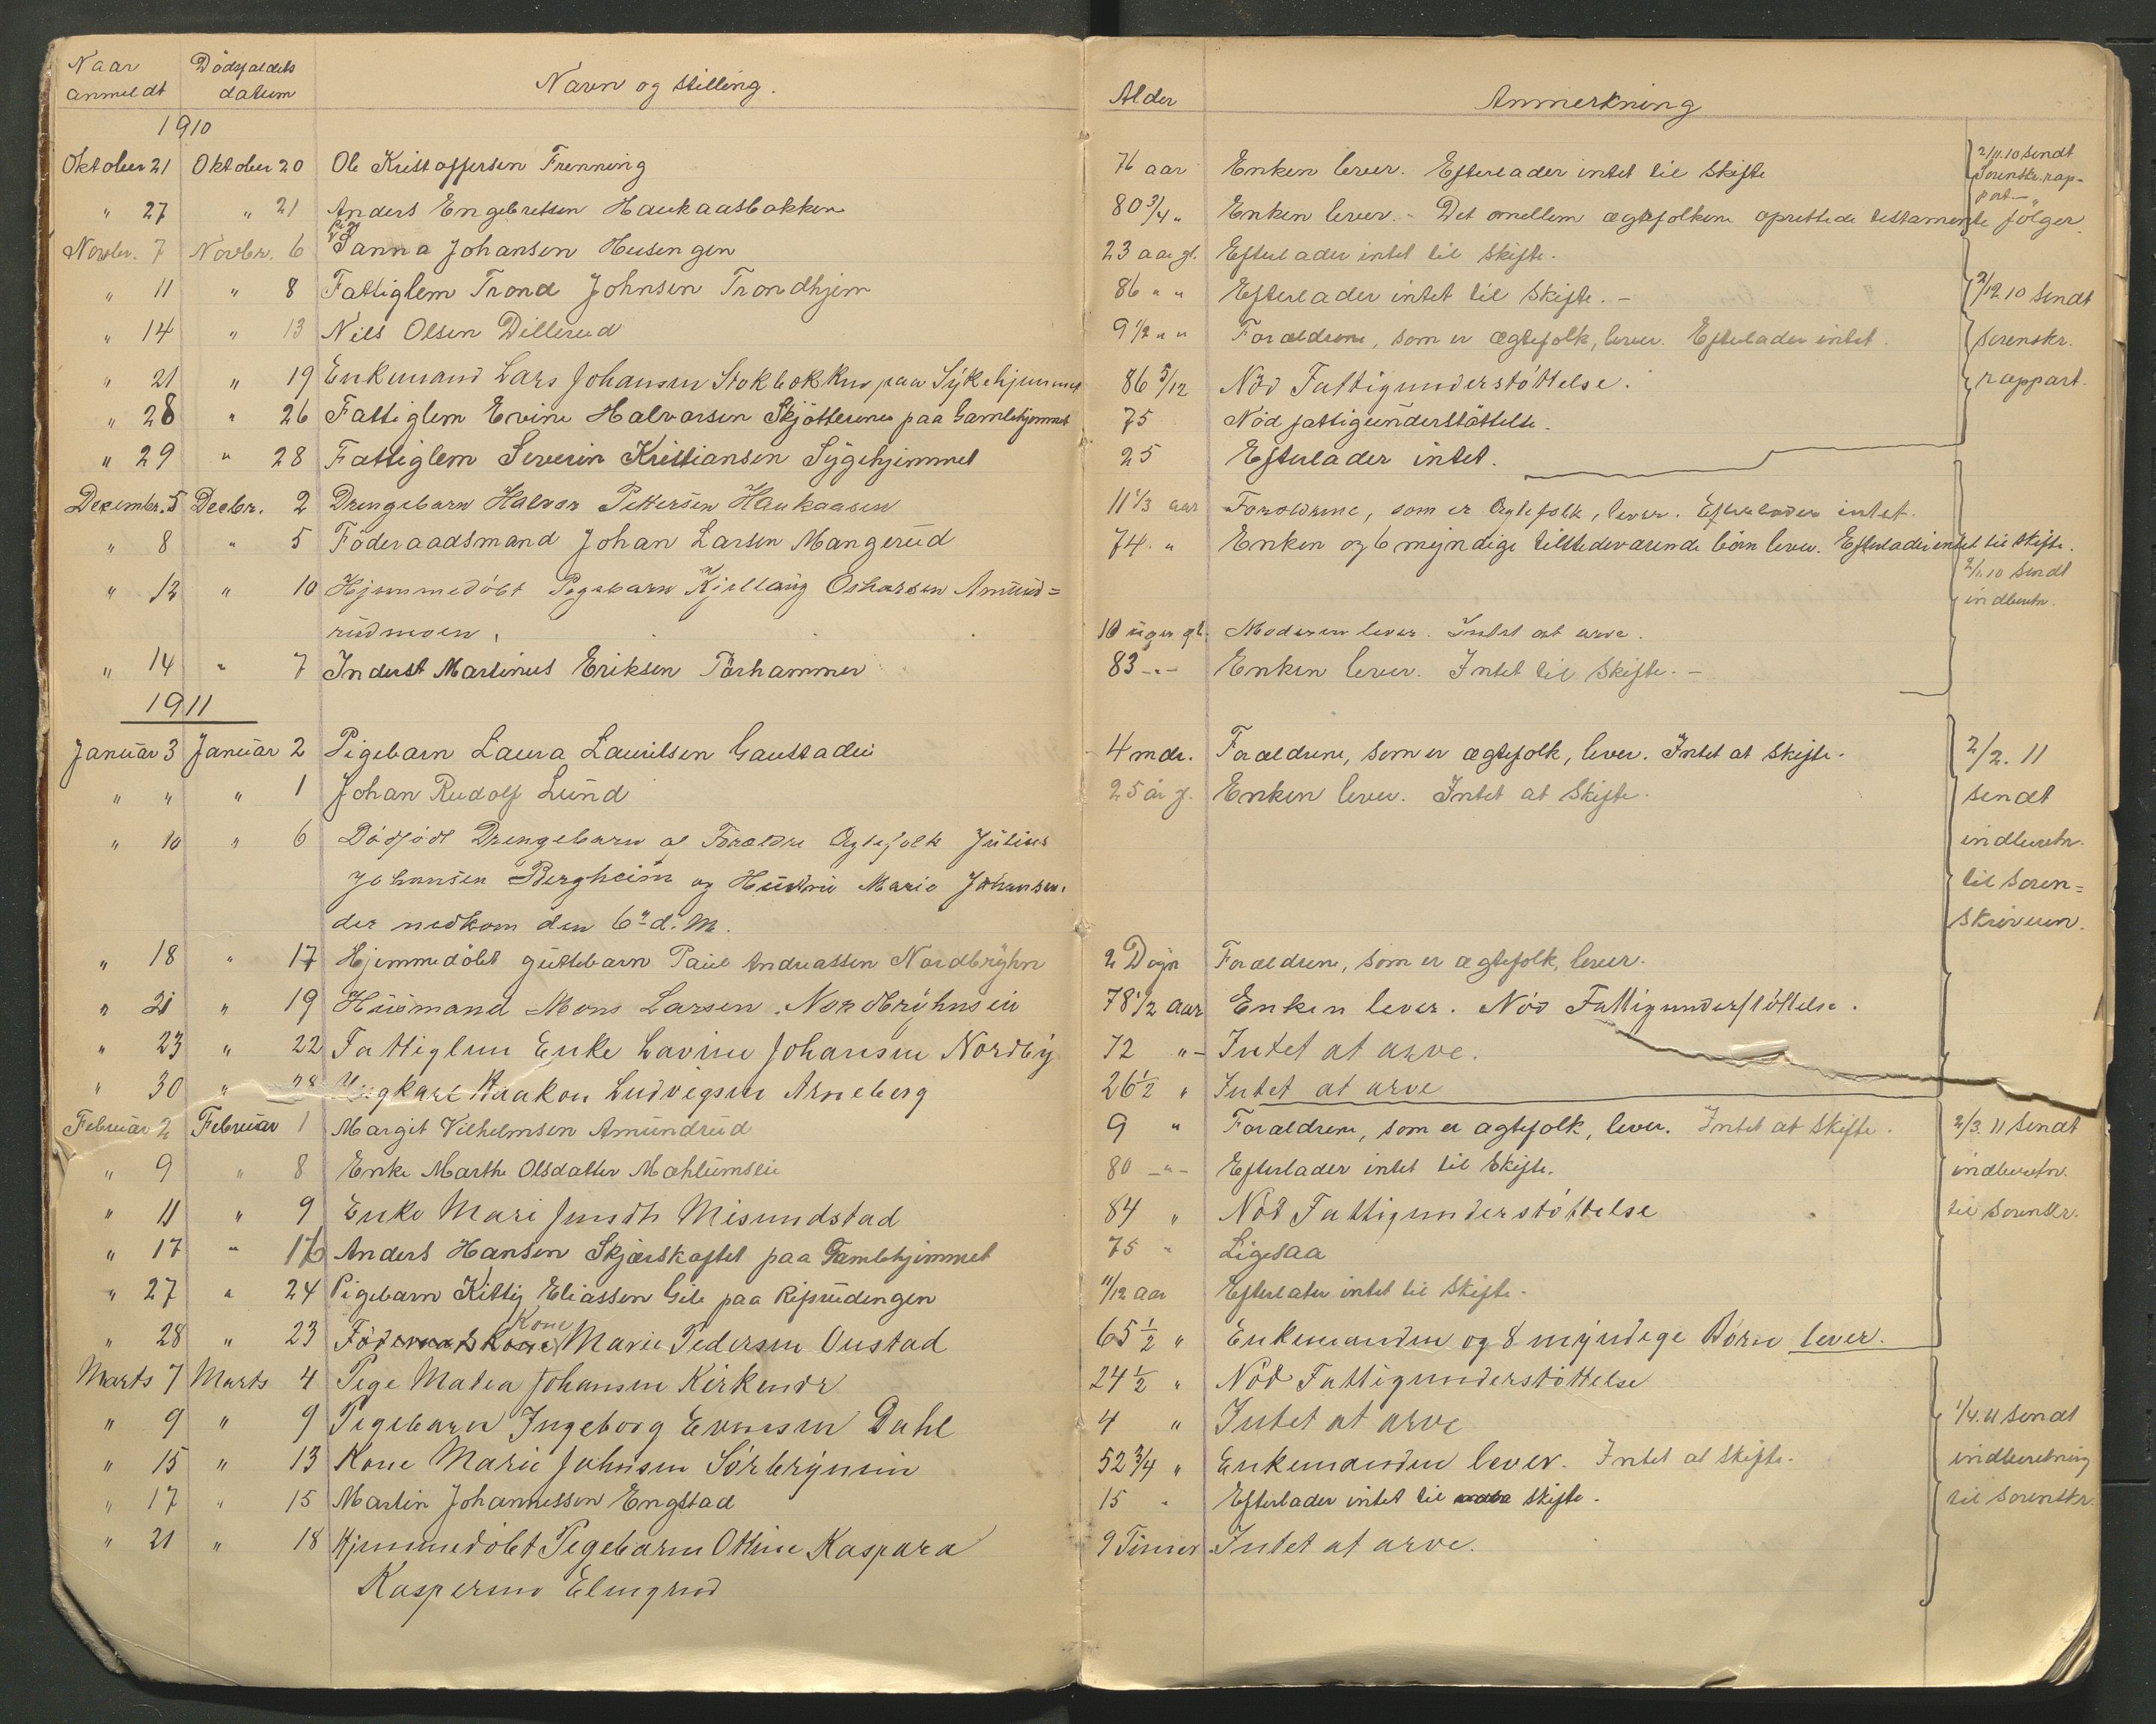 Naar Dødsfaldets Navn og stilling. Alder Anmerkning
anmeldt datum
1910
Oktober 21 Oktober 20 Ole Kristoffersen Frenning 76 aar Enken lever. Efterlader intet til skifte 2/11.10 sendt
Sorenskr. rap-
port —
" 27 " 21 Anders Engebretsen Haukaasbakken 80 3/4 " Enken lever. - Det mellem ægtefolkene oprettede testamente følger.
Novbr. 7 Novbr. 6 Pige Janna Johansen Husengen 23 aar gl. Efterlader intet til skifte.
" 11 " 8 Fattiglem Trond Johnsen Trondhjem 86 " " Efterlader intet til skifte. - 2/12.10 sendt
" 14 " 13 Nils Olsen Dillerud 9 1/2 " " Forældrene, som er ægtefolk, lever. Efterlader intet. sorenskr.
" 21 " 19 Enkemand Lars Johansen Stokbakken paa Sykehjemmet 86 5/12 Nød Fattigunderstøttelse. rappart.
" 28 " 26 Fattiglem Evine Halvorsen Skjøtterene paa Gamlehjemmet 75 Nød fattigunderstøttelse.
" 29 " 28 Fattiglem Severin Kristiansen Sygehjemmet 25 Efterlader intet.
Decembr. 5 Decbr. 2 Drengebarn Halvor Pettersen Haukaasen 11 1/3 aar Forældrene, som er Ægtefolk, lever. Efterlader intet.
" 8 " 5 Føderaadsmand Johan Larsen Mangerud 74 " Enken og 6 myndige tilstedeværende børn lever. Efterlader intet til skifte.
" 12 " 10 Hjemmedøbt Pigebarn Kjellaug Oskarsen Amund= 2/1.10 sendt
rudmoen. 10 uger gl. Moderen lever. Intet at arve. indberetn.
" 14 " 7 Inderst Martinus Eriksen Torhammer 83 - " - Enken lever. Intet til skifte. -
1911
Januar 3 Januar 2 Pigebarn Laura Lauritsen Gaustadei 4 mdr. Forældrene, som er ægtefolk, lever. Intet at skifte. 2/2. 11
" " " 1 Johan Rudolf Lund 25 år g. Enken lever. Intet at skifte. sendt
" 10 " 6 Dødfødt Drengebarn af Forældre Ægtefolk Julius indberetn.
Johansen Bergheim og Hustru Marie Johansen. til soren=
der nedkom den 6te d. M. skriveren.
" 18 " 17 Hjemmedøbt guttebarn Paul Andreassen Nordbryhn 2 Døgn Forældrene, som er ægtefolk, lever.
" 21 " 19 Husmand Mons Larsen Nordbryhnsei 78 1/2 aar Enken lever. Nød Fattigunderstøttelse.
" 23 " 22 Fattiglem Enke Lavine Johansen Nordby 72 " - Intet at arve.
" 30 " 28 Ungkarl Haakon Ludvigsen Arneberg 26 1/2 " Intet at arve
Februar 2 Februar 1 Margit Vilhelmsen Amundrud 9 " Forældrene, som er ægtefolk, lever. Intet at skifte. 2/3. 11 sendt
" 9 " 8 Enke Marthe Olsdatter Mahlumseie 80 - " - Efterlader intet til skifte. indberetn.
" 11 " 9 Enke Mari Jensdtr Misundstad 84 " Nød Fattigunderstøttelse til sorenskr.
" 17 " 16 Anders Hansen Skjærskaftet paa Gamlehjemmet 75 " Ligesaa
" 27 " 24 Pigebarn Kitty Eliassen Gile paa Ripsrudengen 11/12 aar Efterlater intet til skifte.
" 28 " 23 Kone Marie Pedersen Onstad 65 1/2 " Enkemanden og 8 myndige Børn lever.
Marts 7 Marts 4 Pige Matea Johansen Kirkenær 24 1/2 " Nød Fattigunderstøttelse
" 9 " 9 Pigebarn Ingeborg Evensen Dahl 4 " Intet at arve 1/4. 11 sendt
" 15 " 13 Kone Marie Johnsen Sørbrynsei 52 3/4 " Enkemanden lever. Intet at skifte. indberetning
" 17 " 15 Martin Johannessen Engstad 15 " Efterlader intet til skifte. til sorenskr.
" 21 " 18 Hjemmedøbt Pigebarn Ottine Kaspara 9 Timer Intet at arve.
Kaspersen